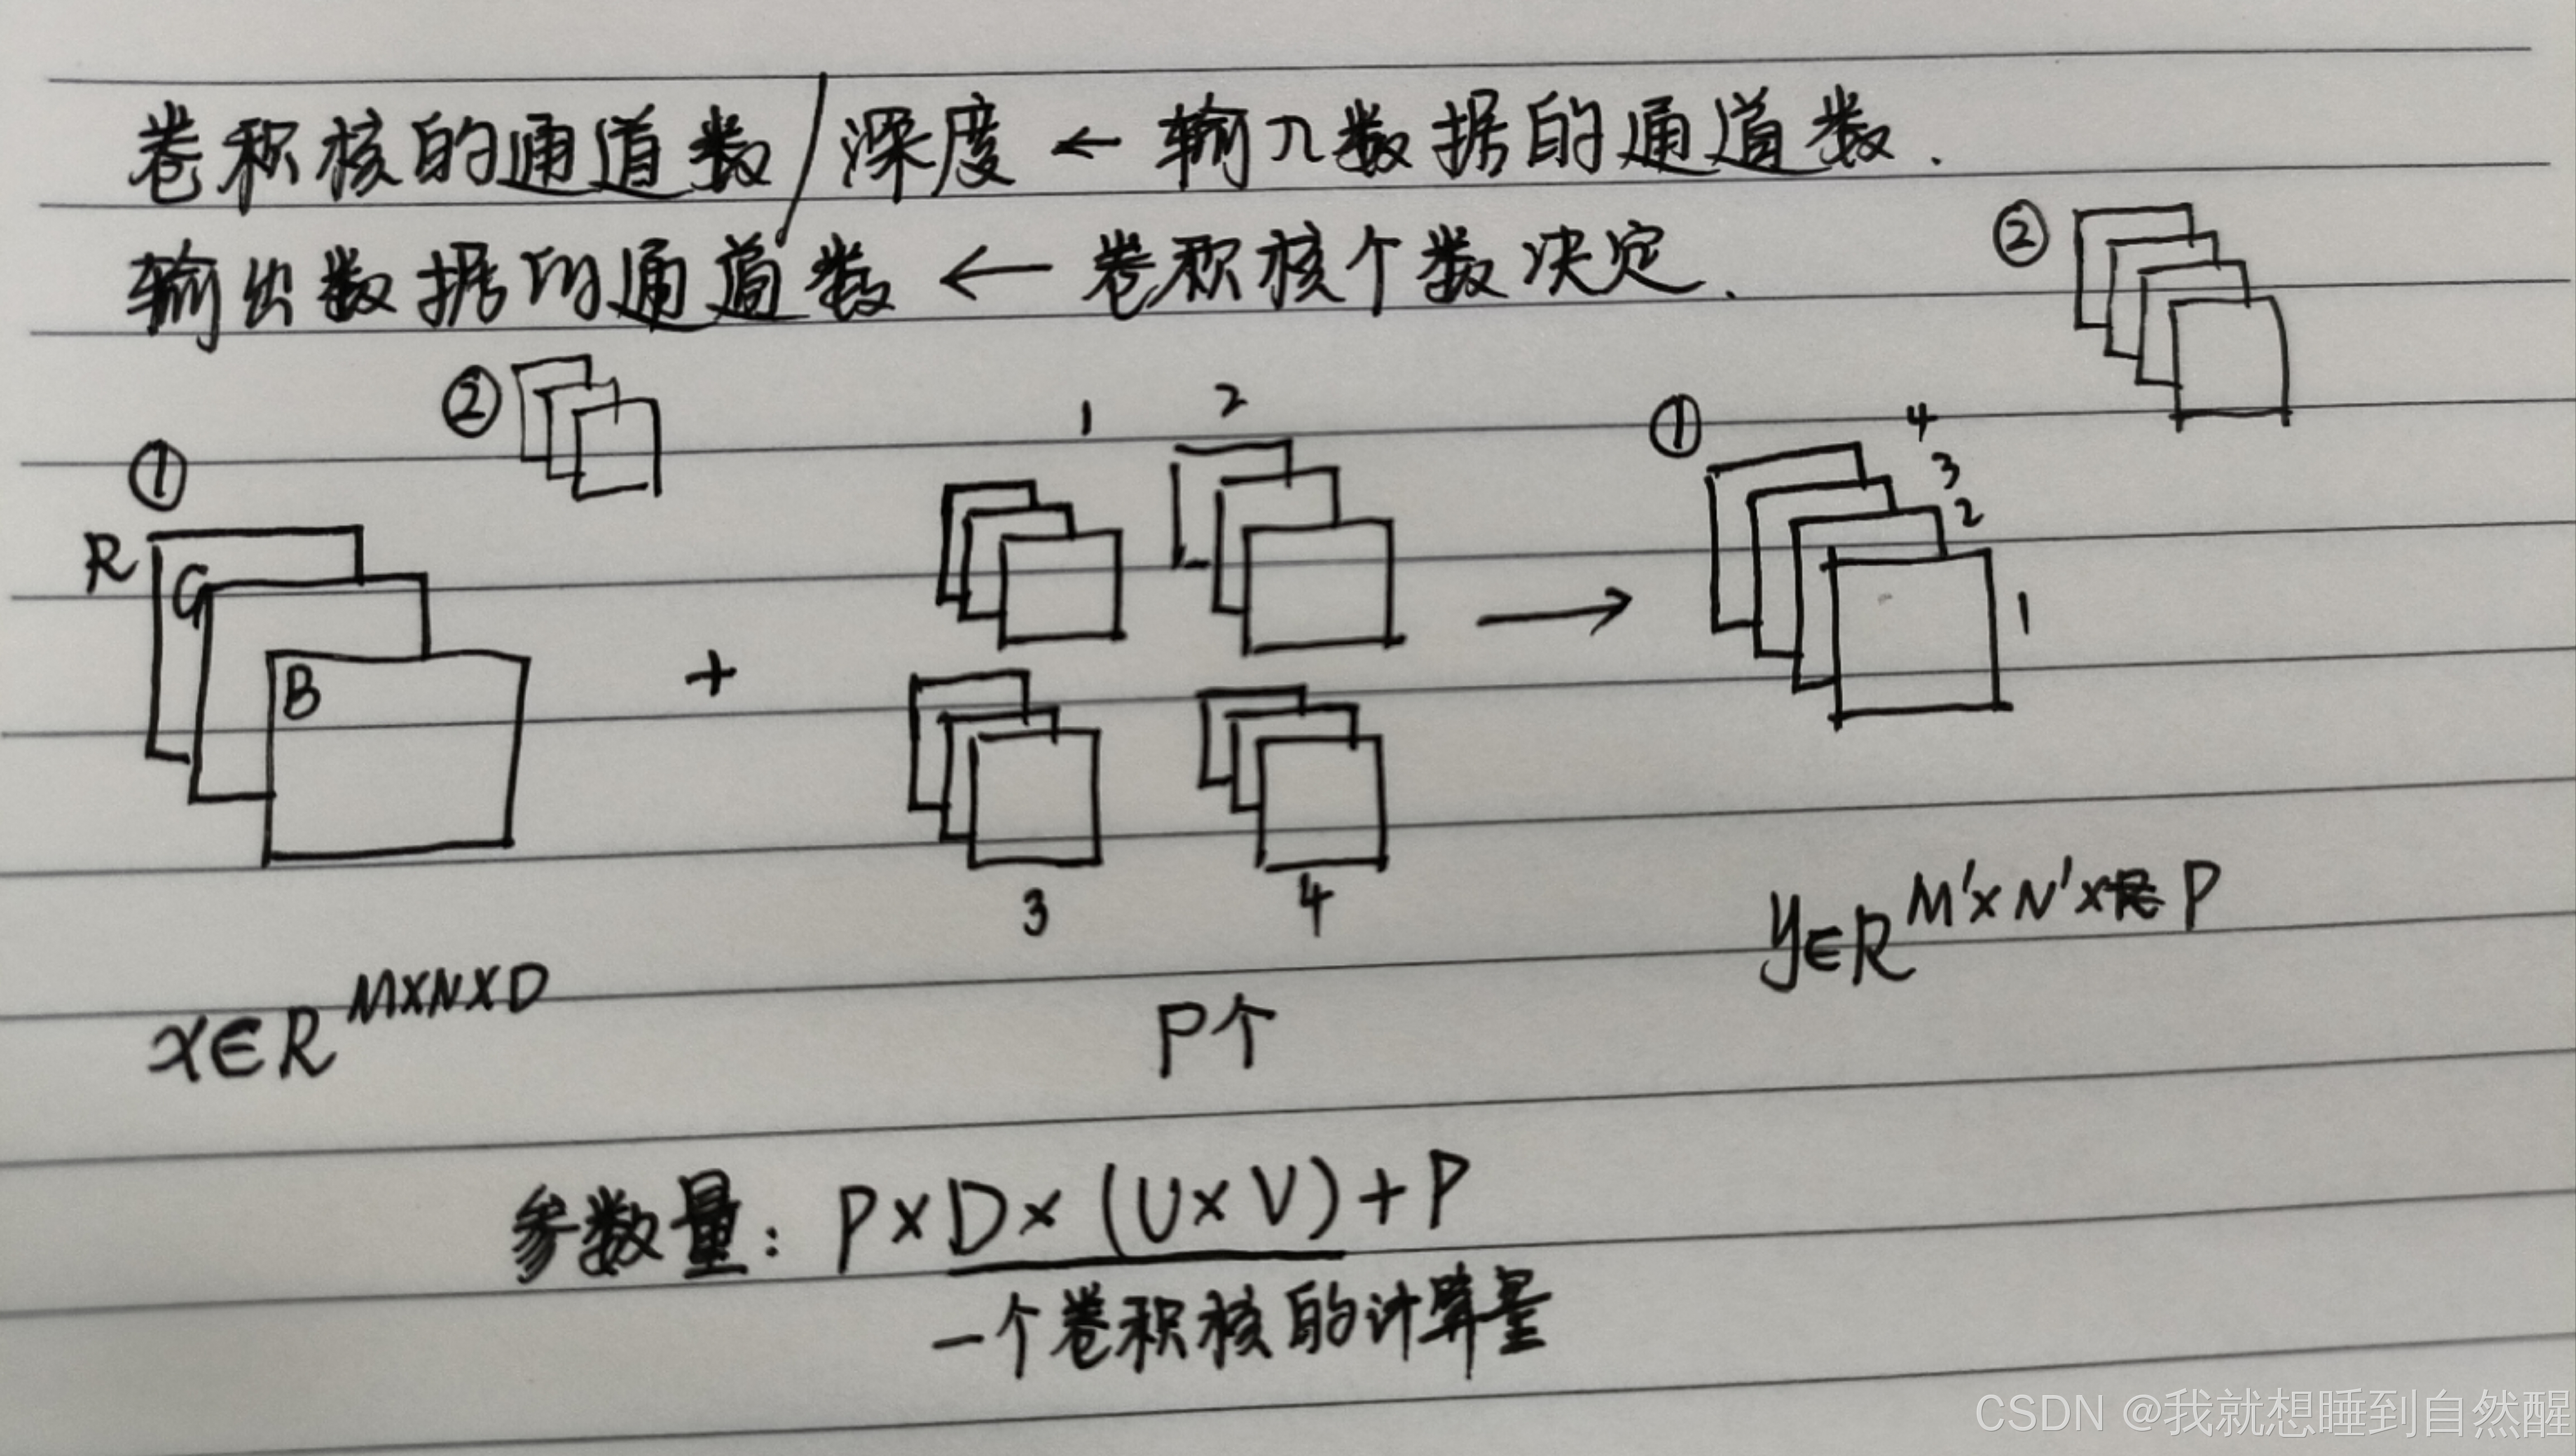 卷积核的通道数/深度 ← 输入数据的通道数.
输出数据的通道数 ← 卷积核个数决定.
②
②
1 2
①
4
3
2
①
R
G
1
B
+
→
3 4
x∈R^{M×N×D}
P个
y∈R^{M'×N'×P}
参数量: P×D×(U×V)+P
一个卷积核的计算量
CSDN @我就想睡到自然醒